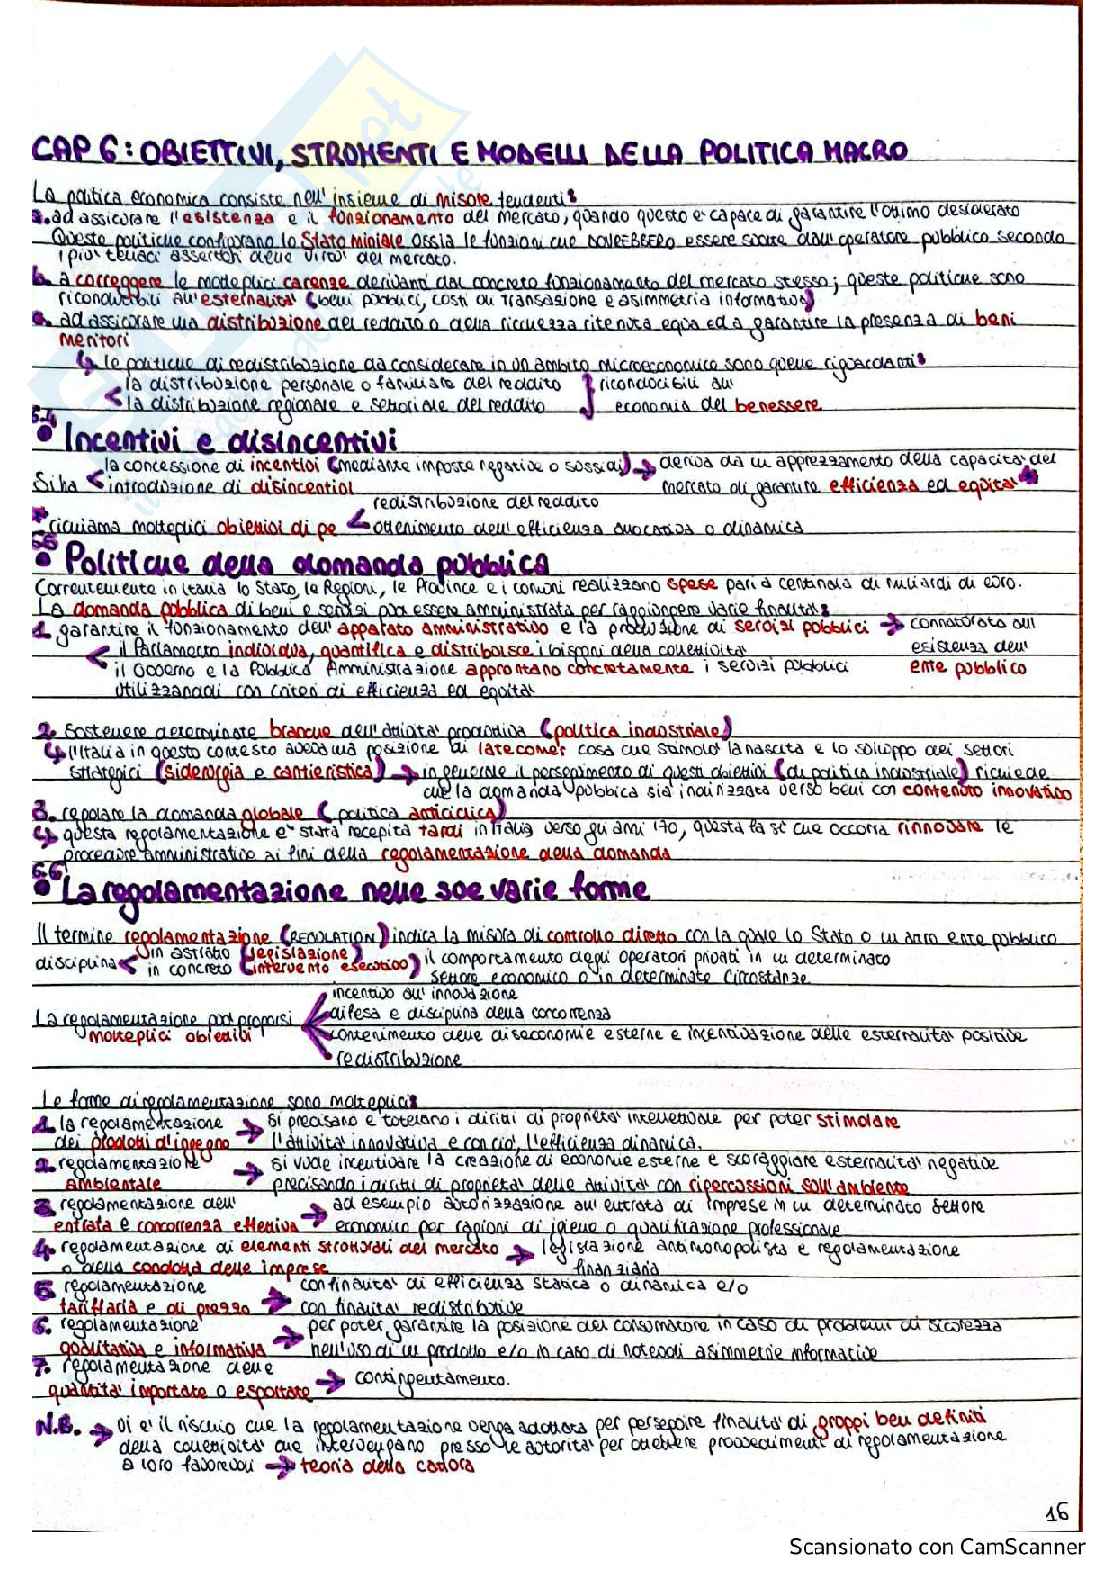 CAP 6: OBIETTIVI, STRUMENTI E MODELLI DELLA POLITICA MACRO
La politica economica consiste nell'insieme di misure tendenti:
a. ad assicurare l'esistenza e il funzionamento del mercato, quando questo è capace di garantire l'ottimo desiderato
Queste politiche configurano lo Stato minimale ossia le funzioni che DOVREBBERO essere svolte dall'operatore pubblico secondo
i più tenaci assertori delle virtù del mercato.
b. a correggere le molteplici carenze derivanti dal concreto funzionamento del mercato stesso; queste politiche sono
riconducibili all'esternalità (beni pubblici, costi di transazione e asimmetria informativa)
c. ad assicurare una distribuzione del reddito o della ricchezza ritenuta equa ed a garantire la presenza di beni
meritori
le politiche di redistribuzione da considerare in un ambito microeconomico sono quelle riguardanti:
la distribuzione personale o familiare del reddito } riconducibili all'
la distribuzione regionale e settoriale del reddito economia del benessere
6.4
• Incentivi e disincentivi
la concessione di incentivi (mediante imposte negative o sussidi) → deriva da un apprezzamento della capacità del
Si ha < introduzione di disincentivi mercato di garantire efficienza ed equità
redistribuzione del reddito
* richiama molteplici obiettivi di pe < ottenimento dell'efficienza allocativa o dinamica
6.5
• Politiche della domanda pubblica
Correntemente in Italia lo Stato, le Regioni, le Province e i comuni realizzano spese pari a centinaia di miliardi di euro.
La domanda pubblica di beni e servizi può essere amministrata per raggiungere varie finalità:
1. garantire il funzionamento dell'apparato amministrativo e la produzione di servizi pubblici → connaturato all'
il Parlamento individua, quantifica e distribuisce i bisogni della collettività esistenza dell'
il Governo e la Pubblica Amministrazione approntano concretamente i servizi pubblici ente pubblico
utilizzandoli con criteri di efficienza ed equità
2. Sostenere determinate branche dell'attività produttiva (politica industriale)
l'Italia in questo contesto aveva una posizione di latecomer cosa che stimolò la nascita e lo sviluppo dei settori
strategici (siderurgia e cantieristica) → in generale il perseguimento di questi obiettivi (di politica industriale) richiede
che la domanda pubblica sia indirizzata verso beni con contenuto innovativo
3. regolare la domanda globale (politica anticiclica)
questa regolamentazione è stata recepita tardi in Italia verso gli anni '70, questo fa sì che occorra rinnovare le
procedure amministrative ai fini della regolamentazione della domanda
6.6
• La regolamentazione nelle sue varie forme
Il termine regolamentazione (REGULATION) indica la misura di controllo diretto con la quale lo Stato o un altro ente pubblico
disciplina < in astratto (legislazione) il comportamento degli operatori privati in un determinato
in concreto (intervento esecutivo) settore economico o in determinate circostanze
incentivo all'innovazione
difesa e disciplina della concorrenza
La regolamentazione può proporsi
molteplici obiettivi contenimento delle diseconomie esterne e incentivazione delle esternalità positive
redistribuzione
Le forme di regolamentazione sono molteplici:
1. la regolamentazione → si precisano e tutelano i diritti di proprietà intellettuale per poter stimolare
dei prodotti d'ingegno l'attività innovativa e con ciò, l'efficienza dinamica.
2. regolamentazione → si vuole incentivare la creazione di economie esterne e scoraggiare esternalità negative
ambientale precisando i diritti di proprietà delle attività con ripercussioni sull'ambiente
3. regolamentazione dell' → ad esempio autorizzazione all'entrata di imprese in un determinato settore
entrata e concorrenza effettiva economico per ragioni di igiene o qualificazione professionale
4. regolamentazione di elementi strutturali del mercato → legislazione antimonopolista e regolamentazione
o della condotta delle imprese finanziaria
5. regolamentazione → con finalità di efficienza statica o dinamica e/o
tariffaria e di prezzo con finalità redistributive
6. regolamentazione → per poter garantire la posizione del consumatore in caso di problemi di sicurezza
qualitativa e informativa nell'uso di un prodotto e/o in caso di notevoli asimmetrie informative
7. regolamentazione delle
quantità importate o esportate → contingentamento.
N.B. → Vi è il rischio che la regolamentazione venga adottata per perseguire finalità di gruppi ben definiti
della collettività che intervengano presso le autorità per ottenere provvedimenti di regolamentazione
a loro favorevoli → teoria della cattura
16
Scansionato con CamScanner